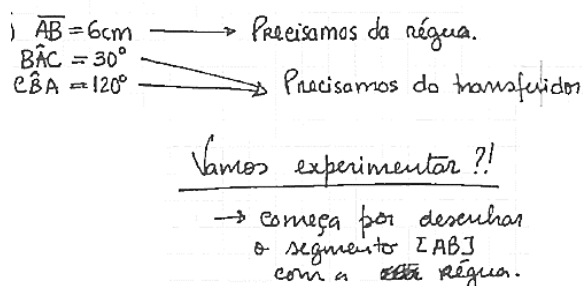 ) AB = 6cm → Precisamos da régua.
BÂC = 30°
CB̂A = 120° → Precisamos do transferidor
Vamos experimentar?!
→ começa por desenhar
o segmento [AB]
com a régua.